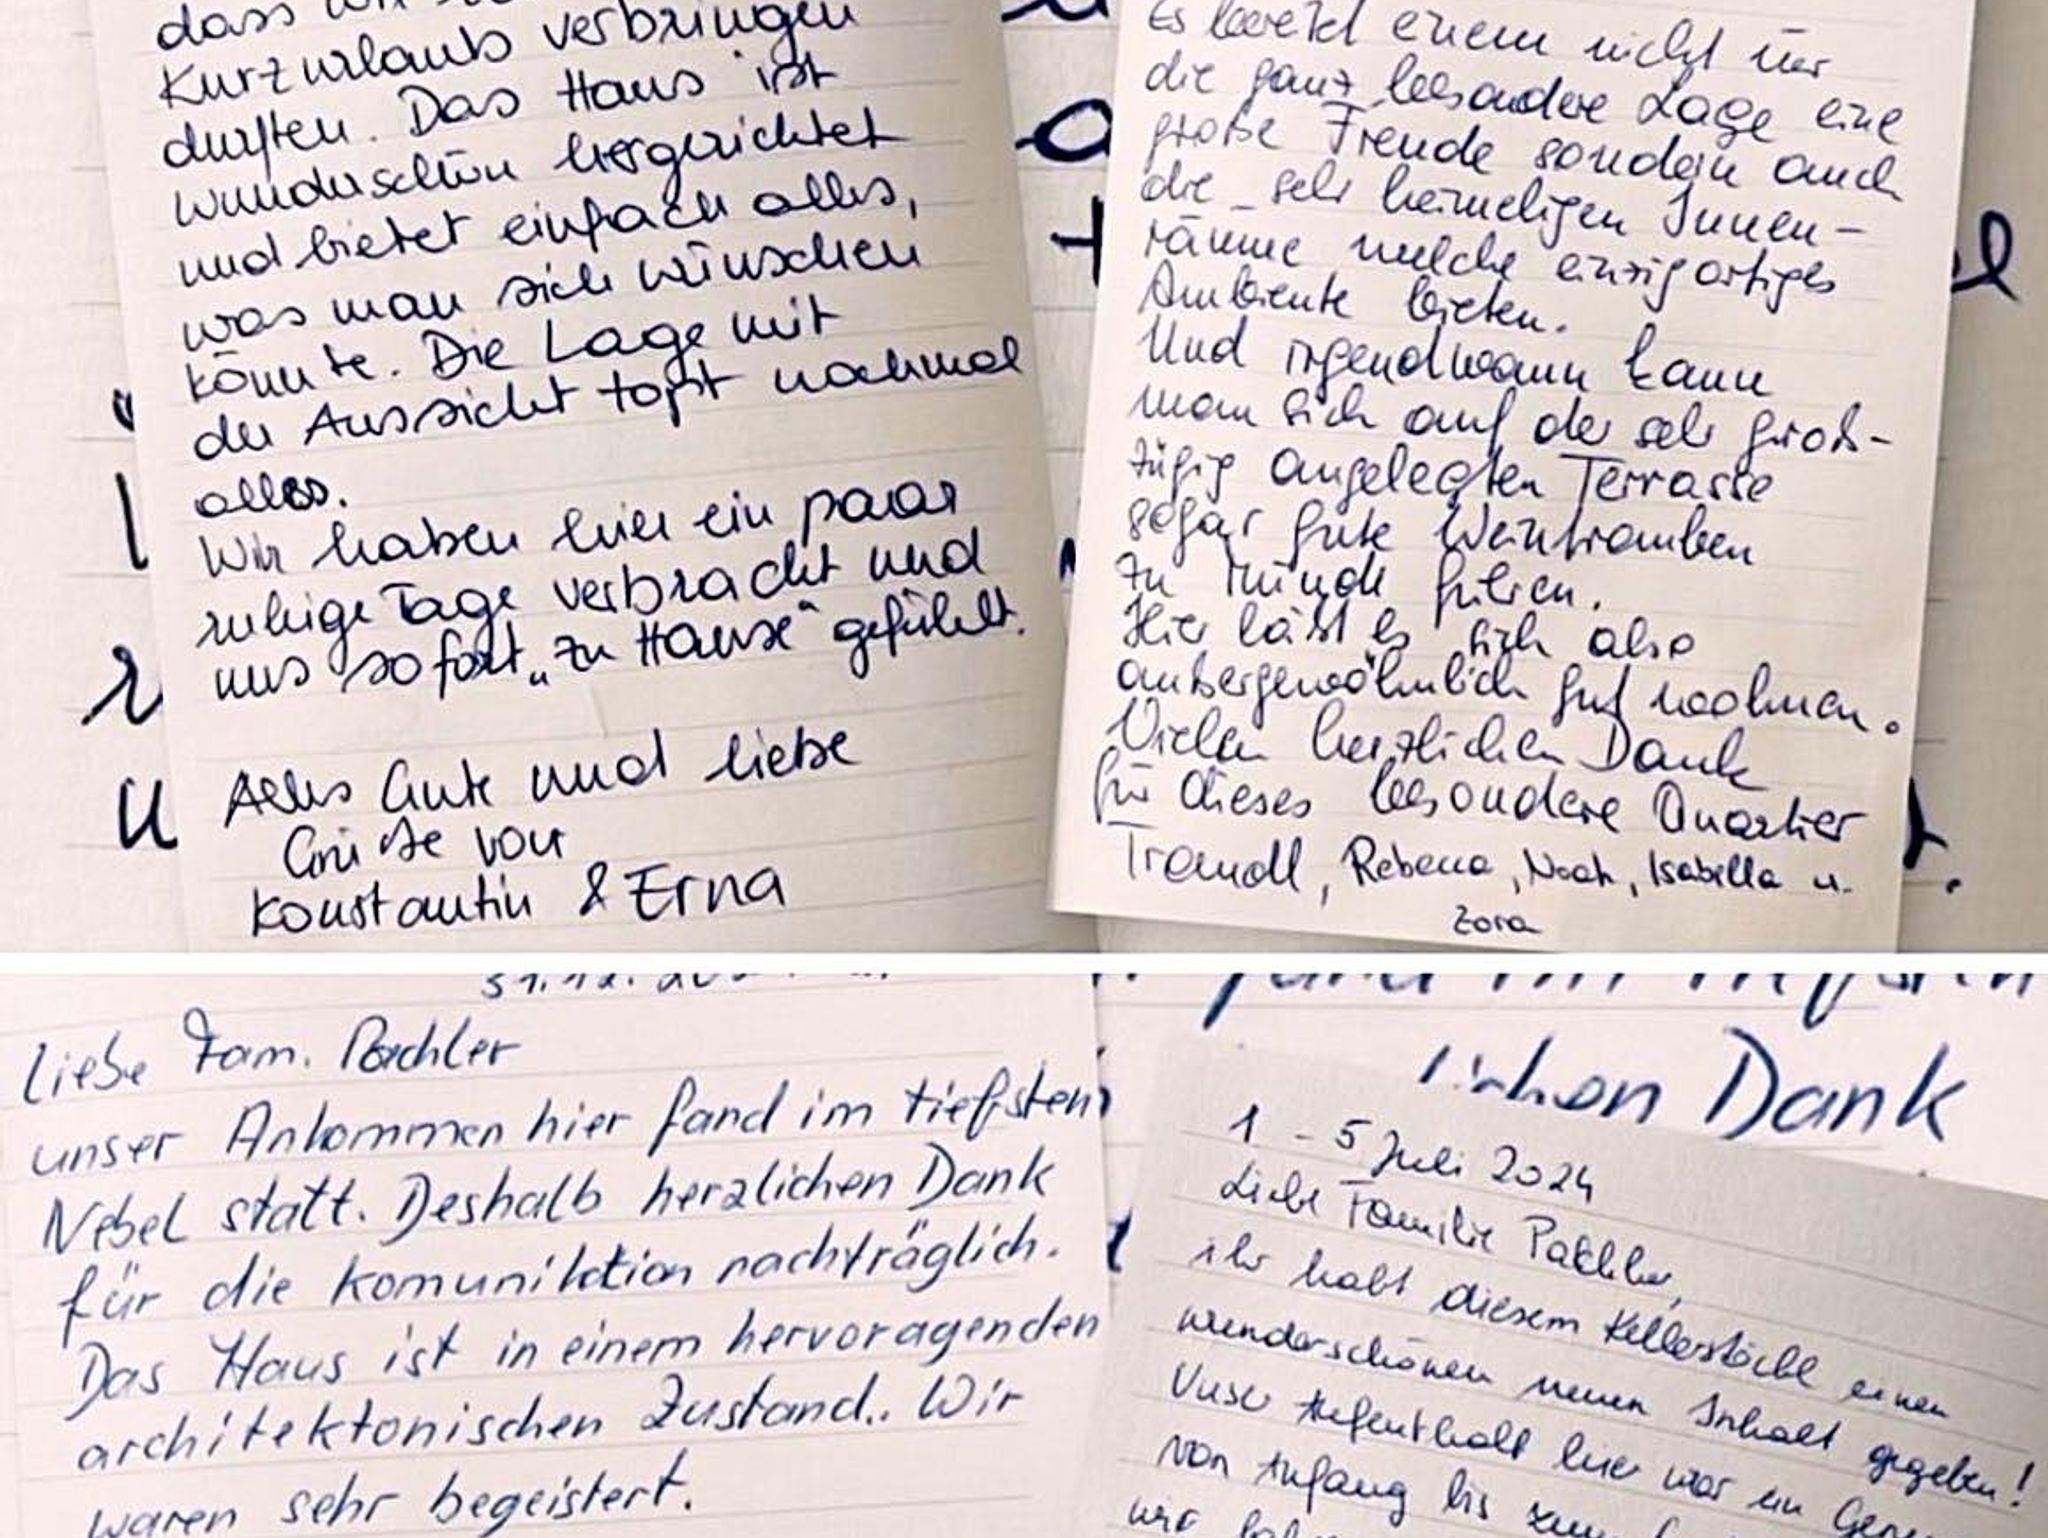 dass wir
Kurzurlaub verbringen
durften. Das Haus ist
wunderschön hergerichtet
und bietet einfach alles,
was man sich wünschen
könnte. Die Lage mit
der Aussicht topt nochmal
alles.
Wir haben hier ein paar
ruhige Tage verbracht und
uns sofort „zu Hause“ gefühlt.
Alles Gute und liebe
Grüße von
Konstantin & Erna
Es bereitet einem nicht nur
die ganz besondere Lage eine
große Freude sondern auch
die sehr heimeligen Innen-
räume welche einzigartiges
Ambiente bieten.
Und irgendwann kann
man sich auf der sehr groß-
zügig angelegten Terrasse
sogar gute Weintrauben
zu Munde führen.
Hier läßt es sich also
außergewöhnlich gut wohnen.
Vielen herzlichen Dank
für dieses besondere Quartier
Traudl, Rebecca, Noah, Isabella u.
Zora
31.12.
Liebe Fam. Pachler
unser Ankommen hier fand im tiefsten
Nebel statt. Deshalb herzlichen Dank
für die Komunikation nachträglich.
Das Haus ist in einem hervoragenden
architektonischen Zustand.. Wir
waren sehr begeistert.
fand im tiefsten
Dank
1 - 5 Juli 2024
Liebe Familie Pachler,
ihr habt diesem Kellerstöckl einen
wunderschönen neuen Inhalt gegeben!
Unser Aufenthalt hier war ein
von Anfang bis zum
wir